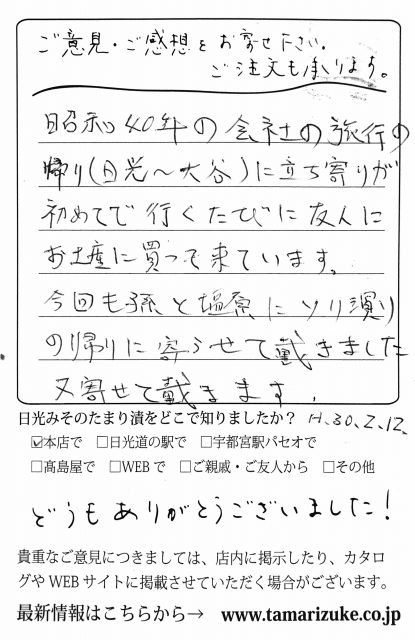 ご意見・ご感想をお寄せ下さい。
ご注文も承ります。
昭和40年の会社の旅行の
帰り(日光〜大谷)に立ち寄りが
初めてで行くたびに友人に
お土産に買って来ています。
今回も孫と塩原にソリ滑り
の帰りに寄らせて戴きました
又寄せて戴きます。
日光みそのたまり漬をどこで知りましたか? H.30.2.12.
☑本店で □日光道の駅で □宇都宮駅パセオで
□髙島屋で □WEBで □ご親戚・ご友人から □その他
どうもありがとうございました!
貴重なご意見につきましては、店内に掲示したり、カタロ
グやWEBサイトに掲載させていただく場合がございます。
最新情報はこちらから→ www.tamarizuke.co.jp